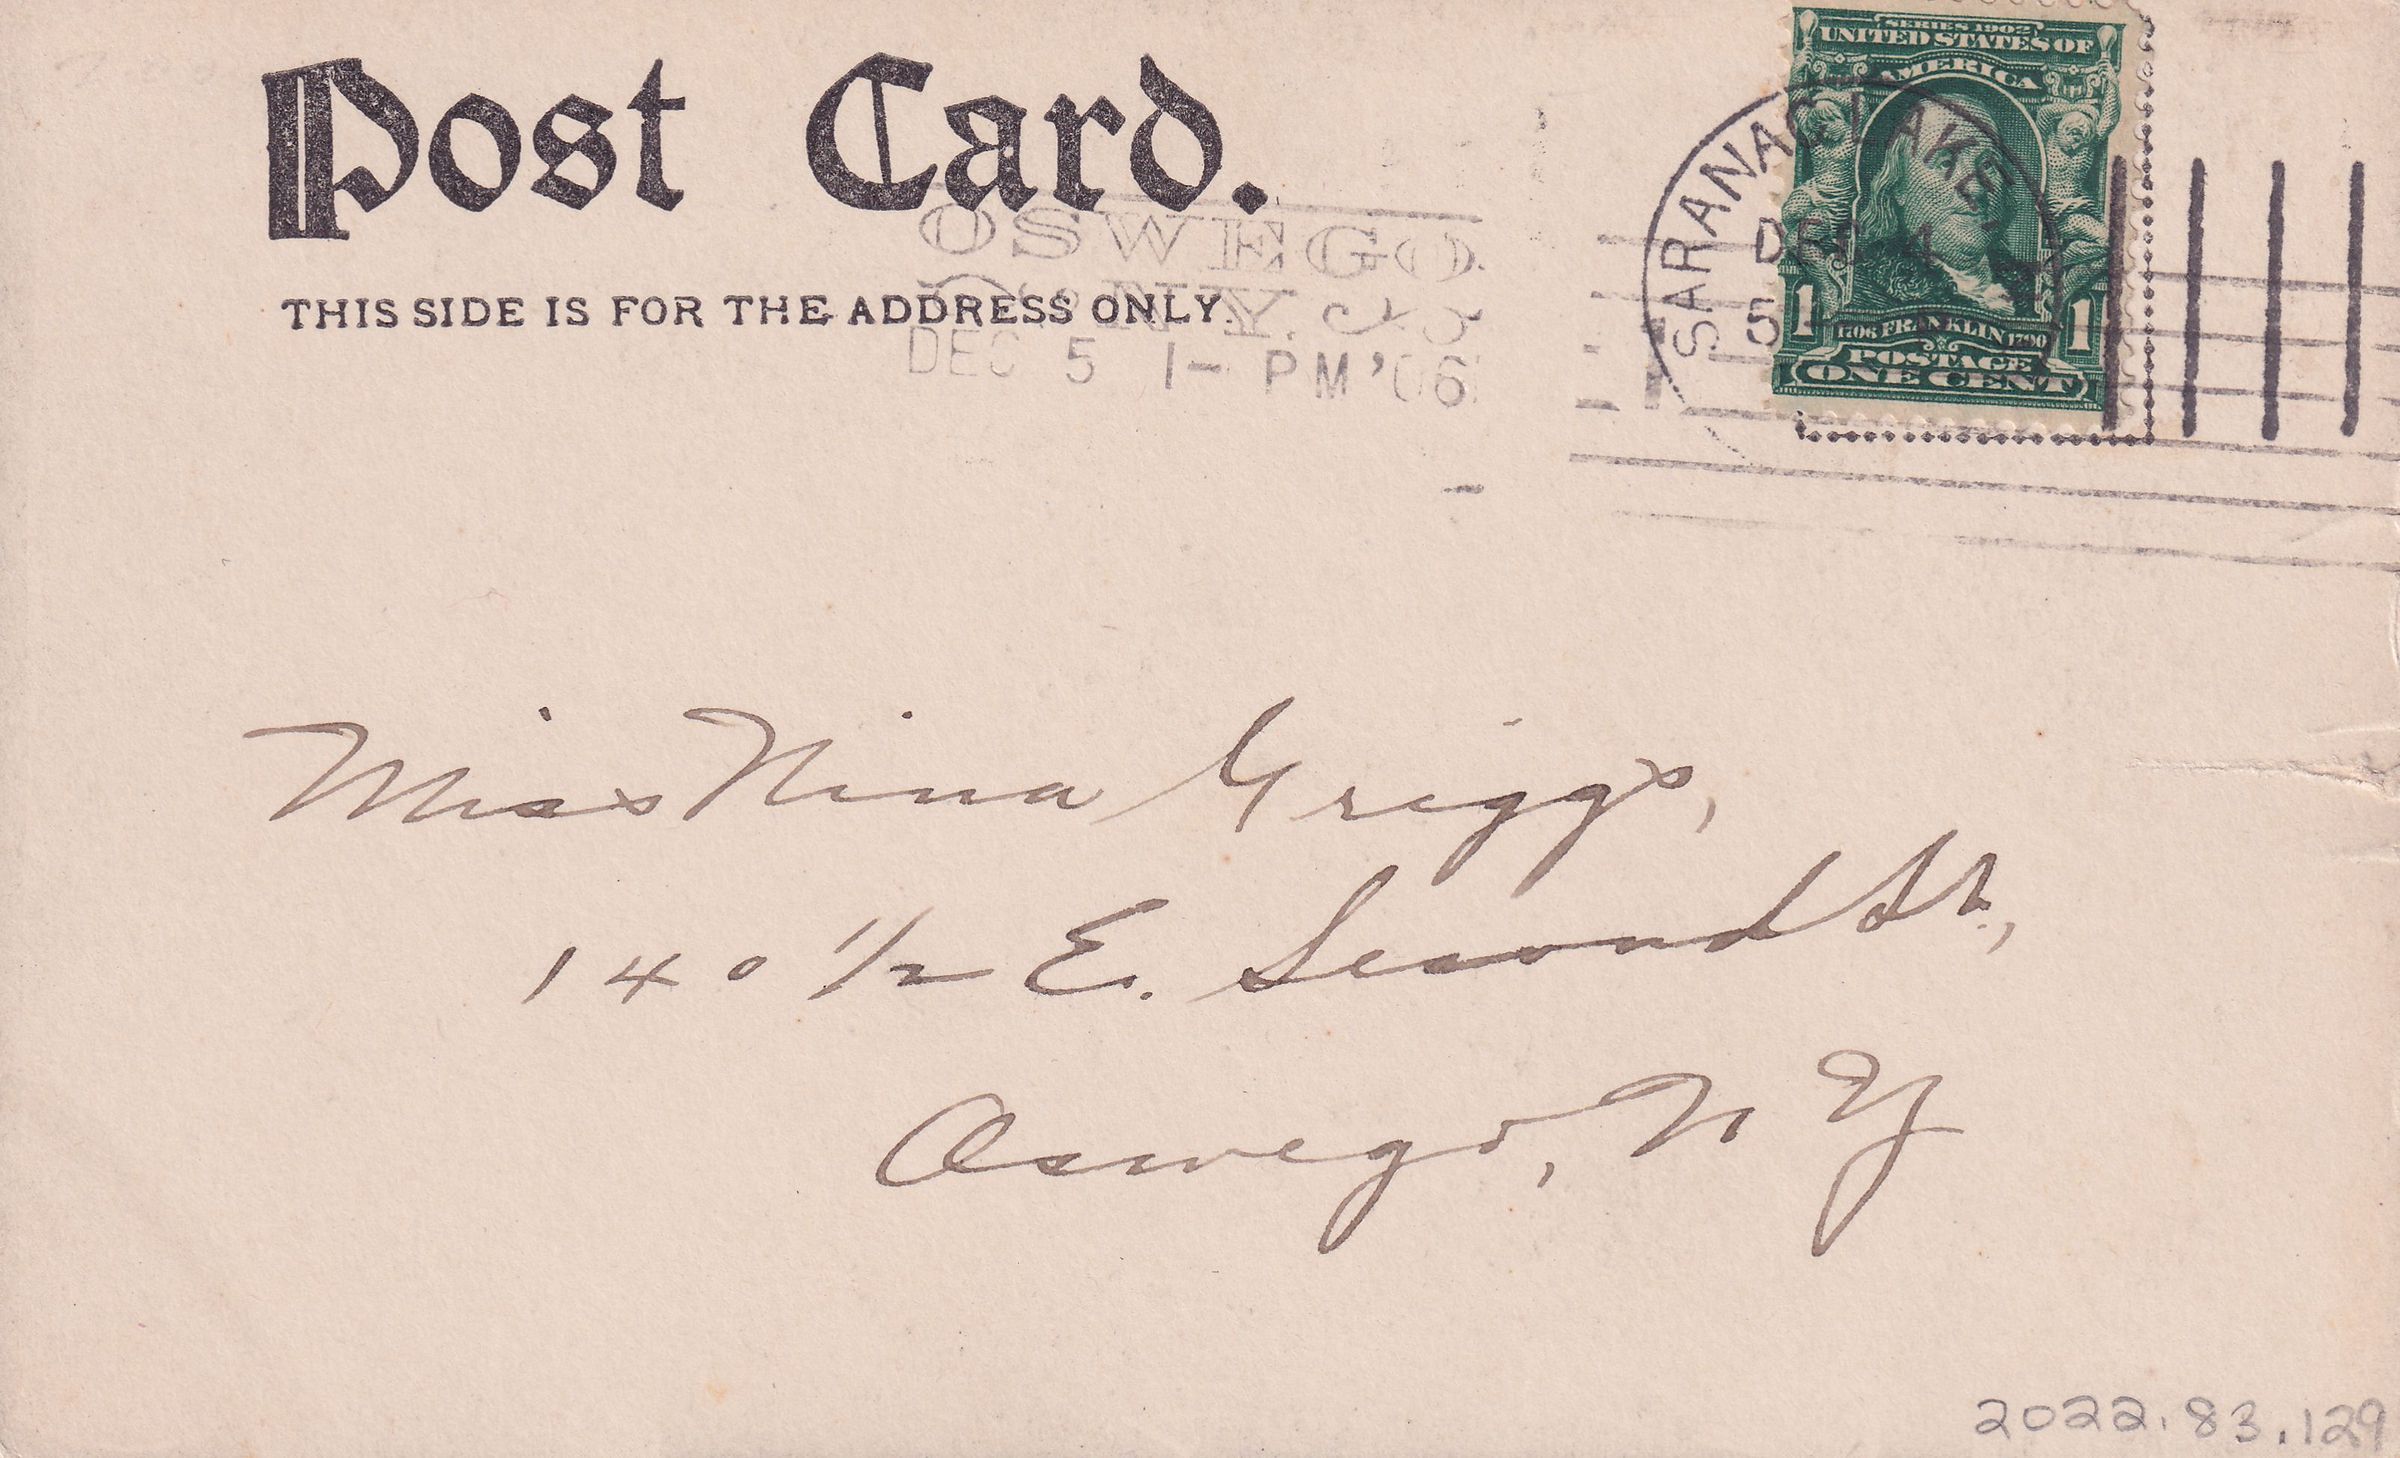 Post Card.
THIS SIDE IS FOR THE ADDRESS ONLY.
OSWEGO
N.Y.
DEC 5 1- PM '06
SARANAC LAKE
DEC 4
5
SERIES 1902
UNITED STATES OF
AMERICA
1 1
1706 FRANKLIN 1790
POSTAGE
ONE CENT
Miss Nina Griggs,
140 1/2 E. Second St.,
Oswego, N Y
2022.83.129